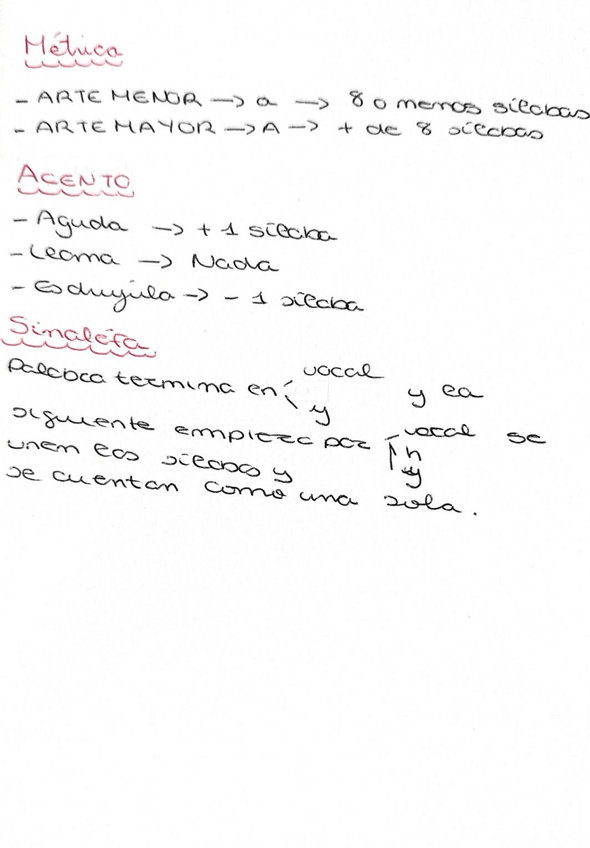 Métrica
- ARTE MENOR -> a -> 8 o menos sílabas
- ARTE MAYOR -> A -> + de 8 sílabas
ACENTO
- Aguda -> + 1 sílaba
- Leana -> Nada
- Esdrújula -> - 1 sílaba
Sinalefa
Palabra termina en vocal y la
y
siguiente empieza por vocal se
unen las sílabas y h
y
se cuentan como una sola.